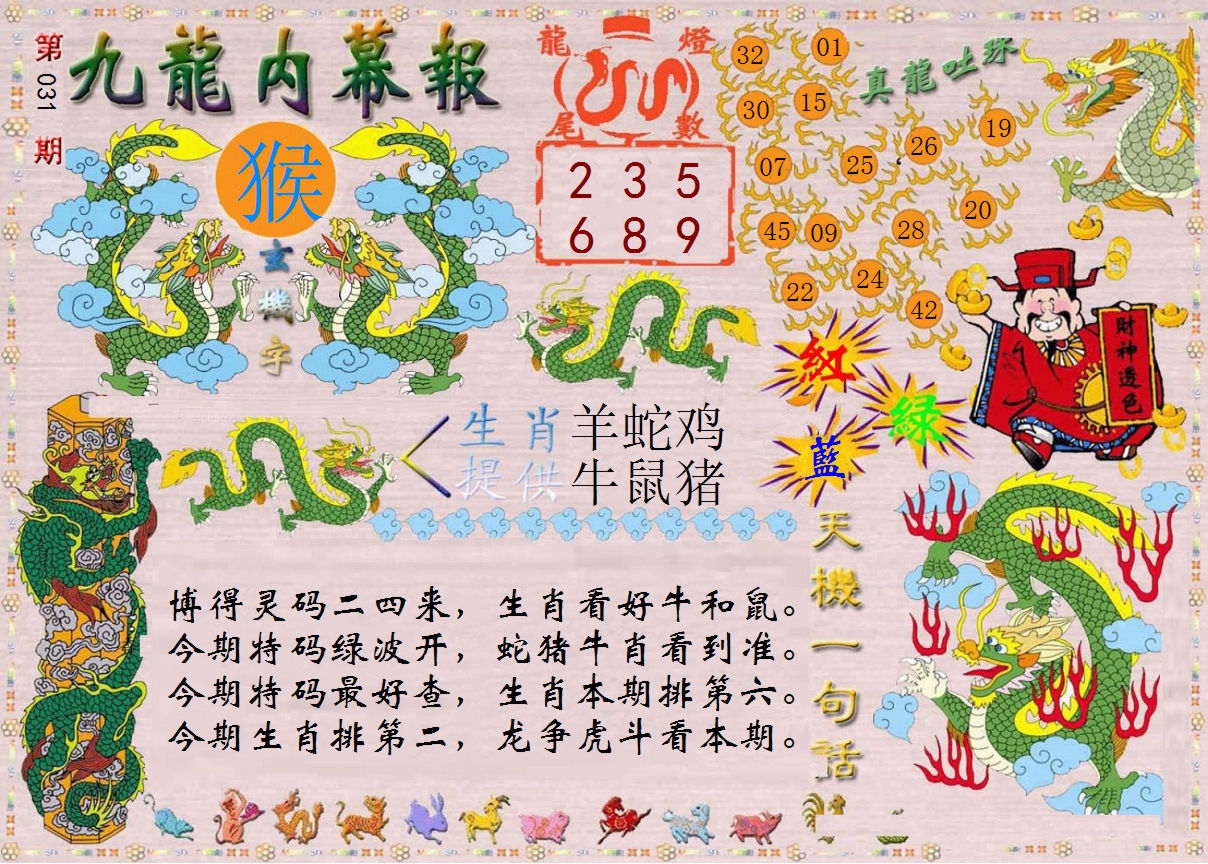 第031期
九龍内幕報
猴
玄機字
龍燈尾數
2 3 5
6 8 9
真龍吐珠
32 01
30 15
07 25 26 19
45 09 28 20
22 24 42
財神透色
紅
綠
藍
生肖 羊蛇鸡
提供 牛鼠猪
天機一句話
博得灵码二四来，生肖看好牛和鼠。
今期特码绿波开，蛇猪牛肖看到准。
今期特码最好查，生肖本期排第六。
今期生肖排第二，龙争虎斗看本期。